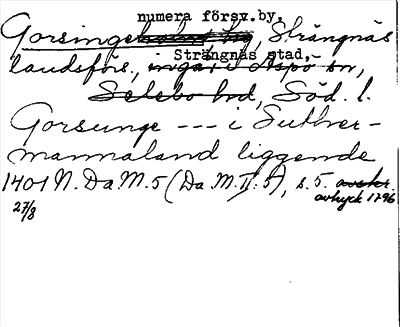 numera försv.by,
Gorsinge, Strängnäs
Strängnäs stad,
landsförs., ingår i Aspö sn,
Selebo hd, Söd. l.
Gorsunge --- i Suther-
mannaland liggende
1401 N. Da M. 5 (Da. M. II: 5), s. 5. avskr.
avtryck 1796
27/8